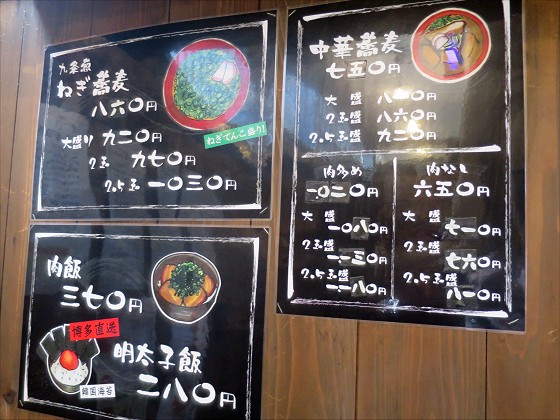 九条葱
ねぎ蕎麦
八六〇円
大盛り 九二〇円
2玉 九七〇円
2.5玉 一〇三〇円
ねぎてんこ盛り!
肉飯
三七〇円
博多直送
明太子飯
韓国海苔
二八〇円
中華蕎麦
七五〇円
大盛 八一〇円
2玉盛 八六〇円
2.5玉盛 九二〇円
肉多め
一〇二〇円
大盛
一〇八〇円
2玉盛
一一三〇円
2.5玉盛
一一八〇円
肉なし
六五〇円
大盛
七一〇円
2玉盛
七六〇円
2.5玉盛
八一〇円